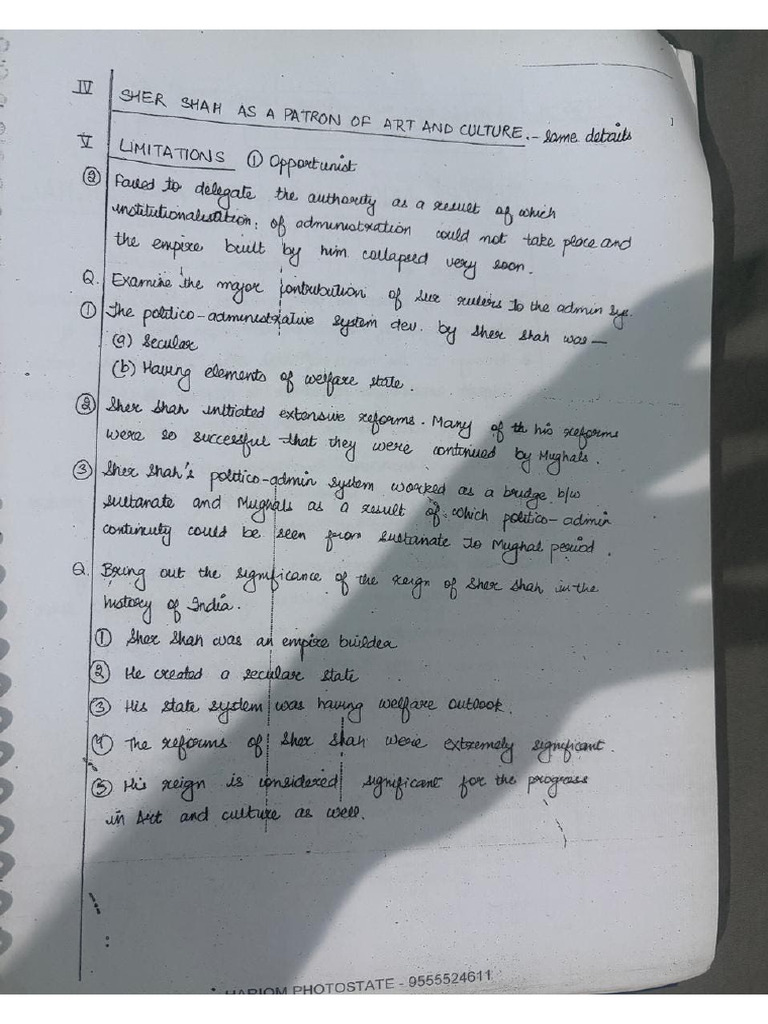 IV SHER SHAH AS A PATRON OF ART AND CULTURE. - Same details
V LIMITATIONS ① Opportunist
② Failed to delegate the authority as a result of which
institutionalisation; of administration could not take place and
the empire built by him collapsed very soon.
Q. Examine the major contribution of Sur rulers to the admin sys.
① The politico-administrative system dev. by Sher Shah was —
(a) Secular
(b) Having elements of welfare state.
② Sher Shah initiated extensive reforms. Many of th his reforms
were so successful that they were continued by Mughals.
③ Sher Shah's politico-admin system worked as a bridge b/w
Sultanate and Mughals as a result of which politico-admin
continuity could be seen from Sustanate to Mughal period.
Q. Bring out the significance of the reign of Sher Shah in the
history of India.
① Sher Shah was an empire builder
② He created a secular state
③ His state system was having welfare outlook.
④ The reforms of Sher Shah were extremely significant.
⑤ His reign is considered significant for the progress
in Art and culture as well.
HARIOM PHOTOSTATE - 9555524611